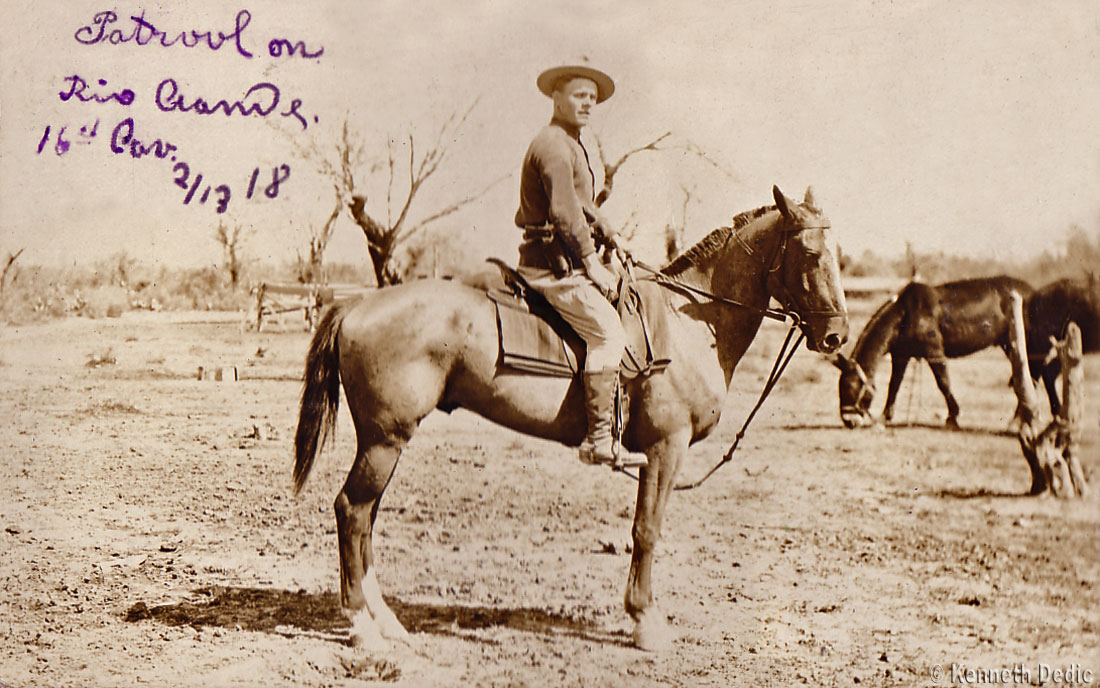 Patrool on
Rio Grande.
16th Cav.
2/13 18
© Kenneth Dedic